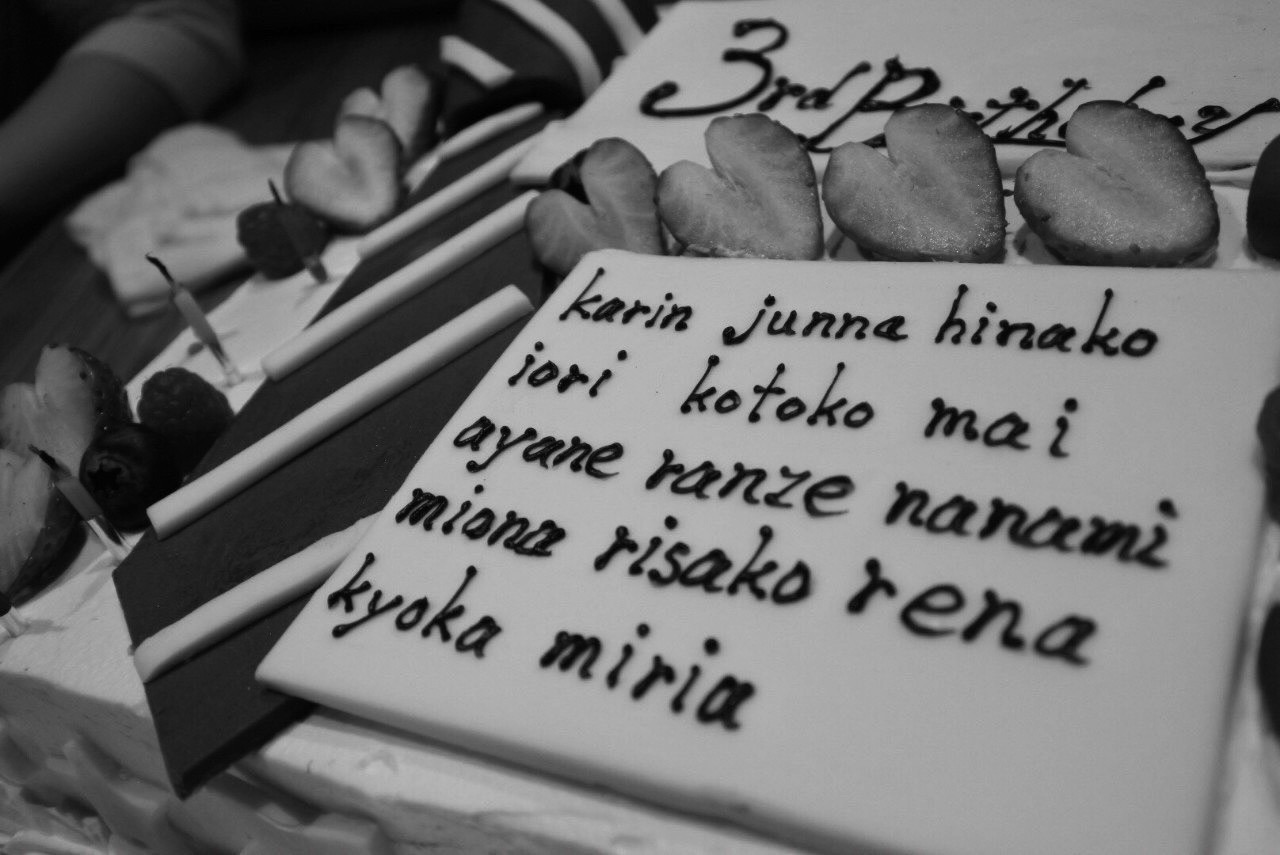 3rd Birthday
karin junna hinako
iori kotoko mai
ayane ranze nanami
miona risako rena
kyoka miria